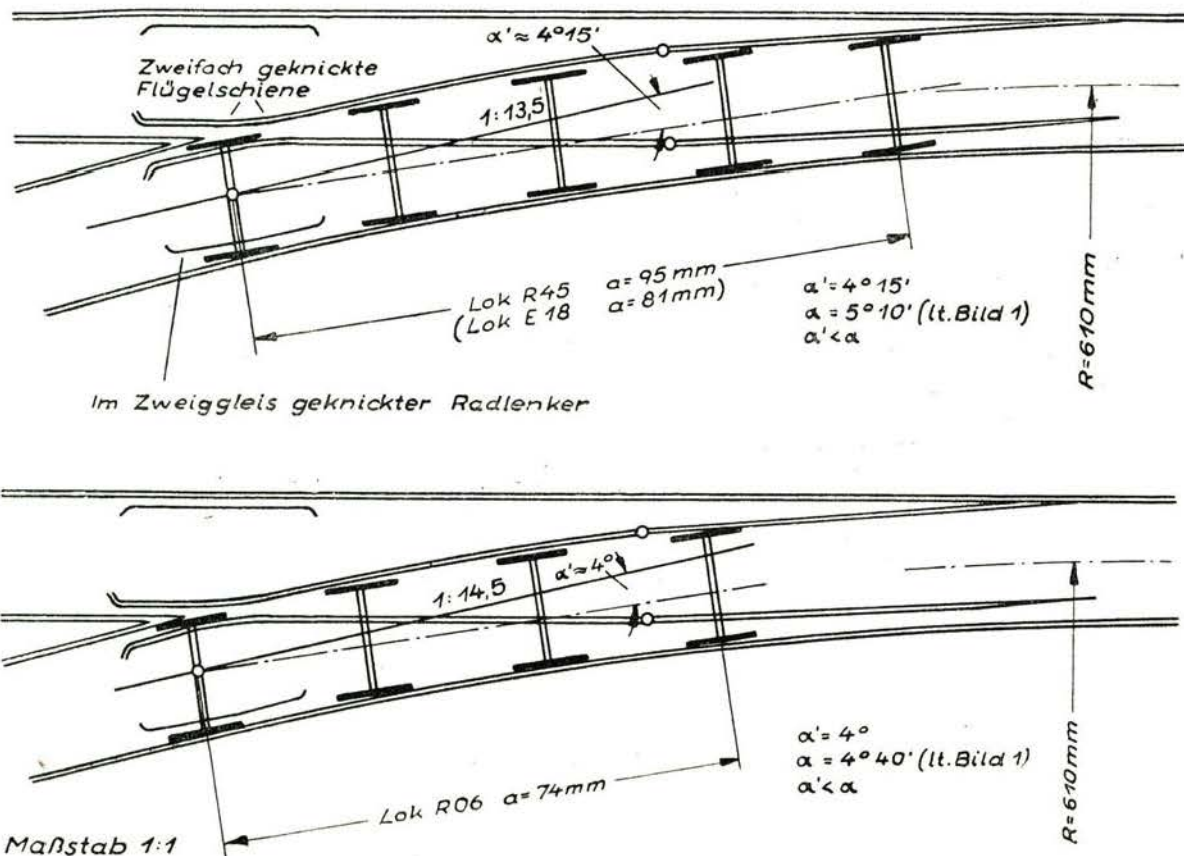 α'≈ 4°15'
Zweifach geknickte
Flügelschiene
1:13,5
Lok R45 a=95mm
(Lok E18 a=81mm)
α'=4°15'
α = 5°10' (lt.Bild 1)
α'<α
R=610mm
Im Zweiggleis geknickter Radlenker
1:14,5
α'≈4°
Lok R06 a=74mm
α'= 4°
α = 4°40' (lt.Bild 1)
α'<α
R=610mm
Maßstab 1:1